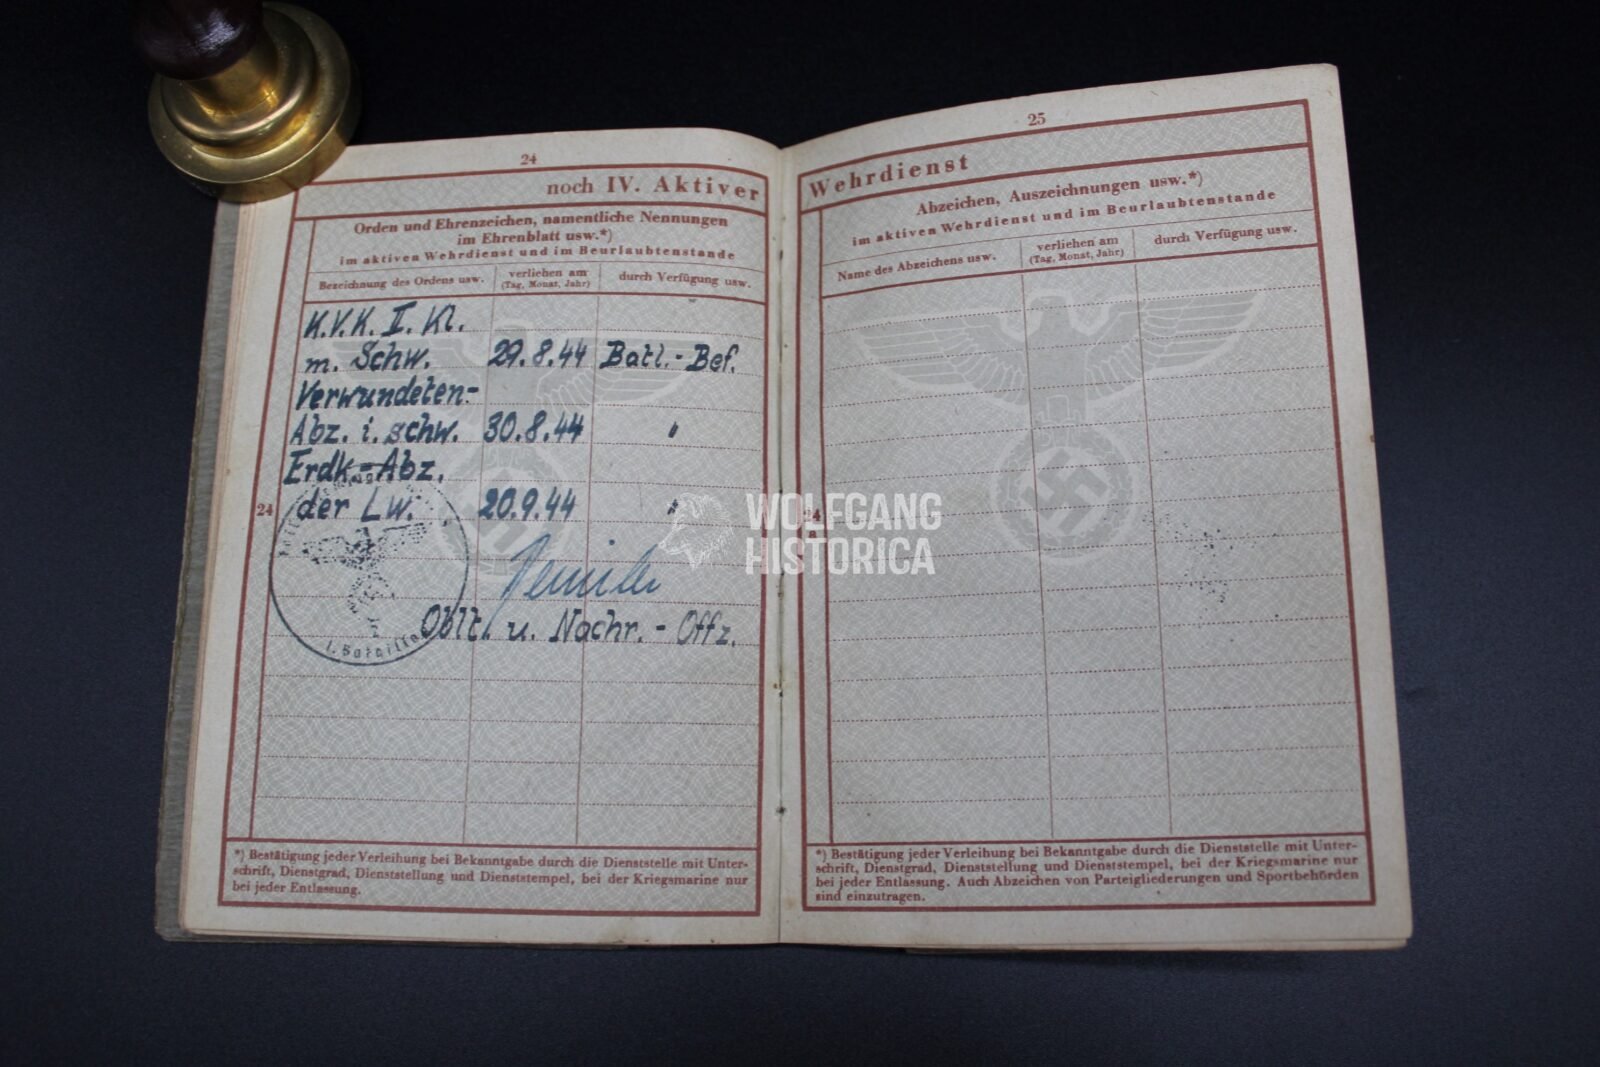 24
noch IV. Aktiver
Orden und Ehrenzeichen, namentliche Nennungen
im Ehrenblatt usw.*)
im aktiven Wehrdienst und im Beurlaubtenstande
Bezeichnung des Ordens usw. verliehen am (Tag, Monat, Jahr) durch Verfügung usw.
K.V.K. II. Kl.
m. Schw. 29.8.44 Batl.-Bef.
Verwundeten-
Abz. i. schw. 30.8.44 "
Erdk.-Abz.
24 der Lw. 20.9.44 "
Oblt. u. Nachr.-Offz.
I. Bataillon
*) Bestätigung jeder Verleihung bei Bekanntgabe durch die Dienststelle mit Unter-
schrift, Dienstgrad, Dienststellung und Dienststempel, bei der Kriegsmarine nur
bei jeder Entlassung.
25
Wehrdienst
Abzeichen, Auszeichnungen usw.*)
im aktiven Wehrdienst und im Beurlaubtenstande
Name des Abzeichens usw. verliehen am (Tag, Monat, Jahr) durch Verfügung usw.
24
*) Bestätigung jeder Verleihung bei Bekanntgabe durch die Dienststelle mit Unter-
schrift, Dienstgrad, Dienststellung und Dienststempel, bei der Kriegsmarine nur
bei jeder Entlassung. Auch Abzeichen von Parteigliederungen und Sportbehörden
sind einzutragen.
WOLFGANG
HISTORICA